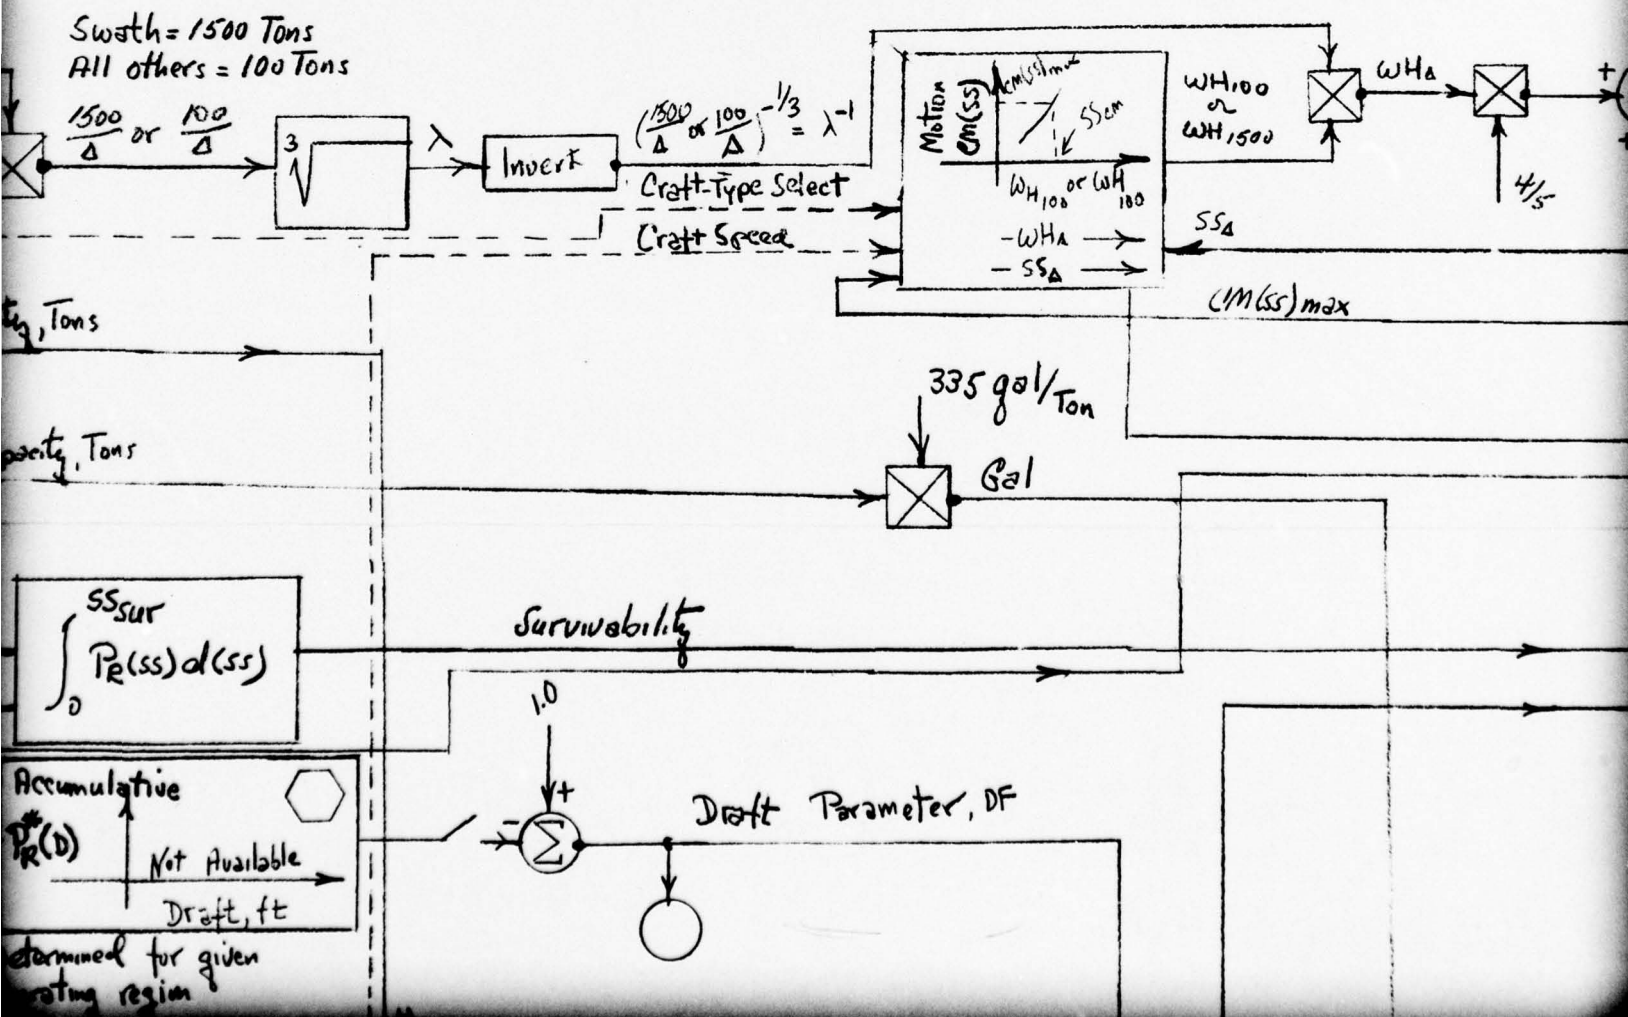 Swath = 1500 Tons
All others = 100 Tons
1500/Δ or 100/Δ
3√
λ
Invert
(1500/Δ or 100/Δ)^-1/3 = λ^-1
Craft-Type Select
Craft Speed
Motion
cm(ss)
cm(ss)max
SScm
WH100 or WH100
-WHΔ
-SSΔ
WH100
or
WH1500
WHΔ
+
4/5
+
SSΔ
(M(ss)max
ty, Tons
335 gal/Ton
pacity, Tons
Gal
SSsur
∫ PR(ss)d(ss)
0
Survivability
1.0
+
-
Σ
Draft Parameter, DF
Accumulative
P*R(D)
Not Available
Draft, ft
etermined for given
rating regim